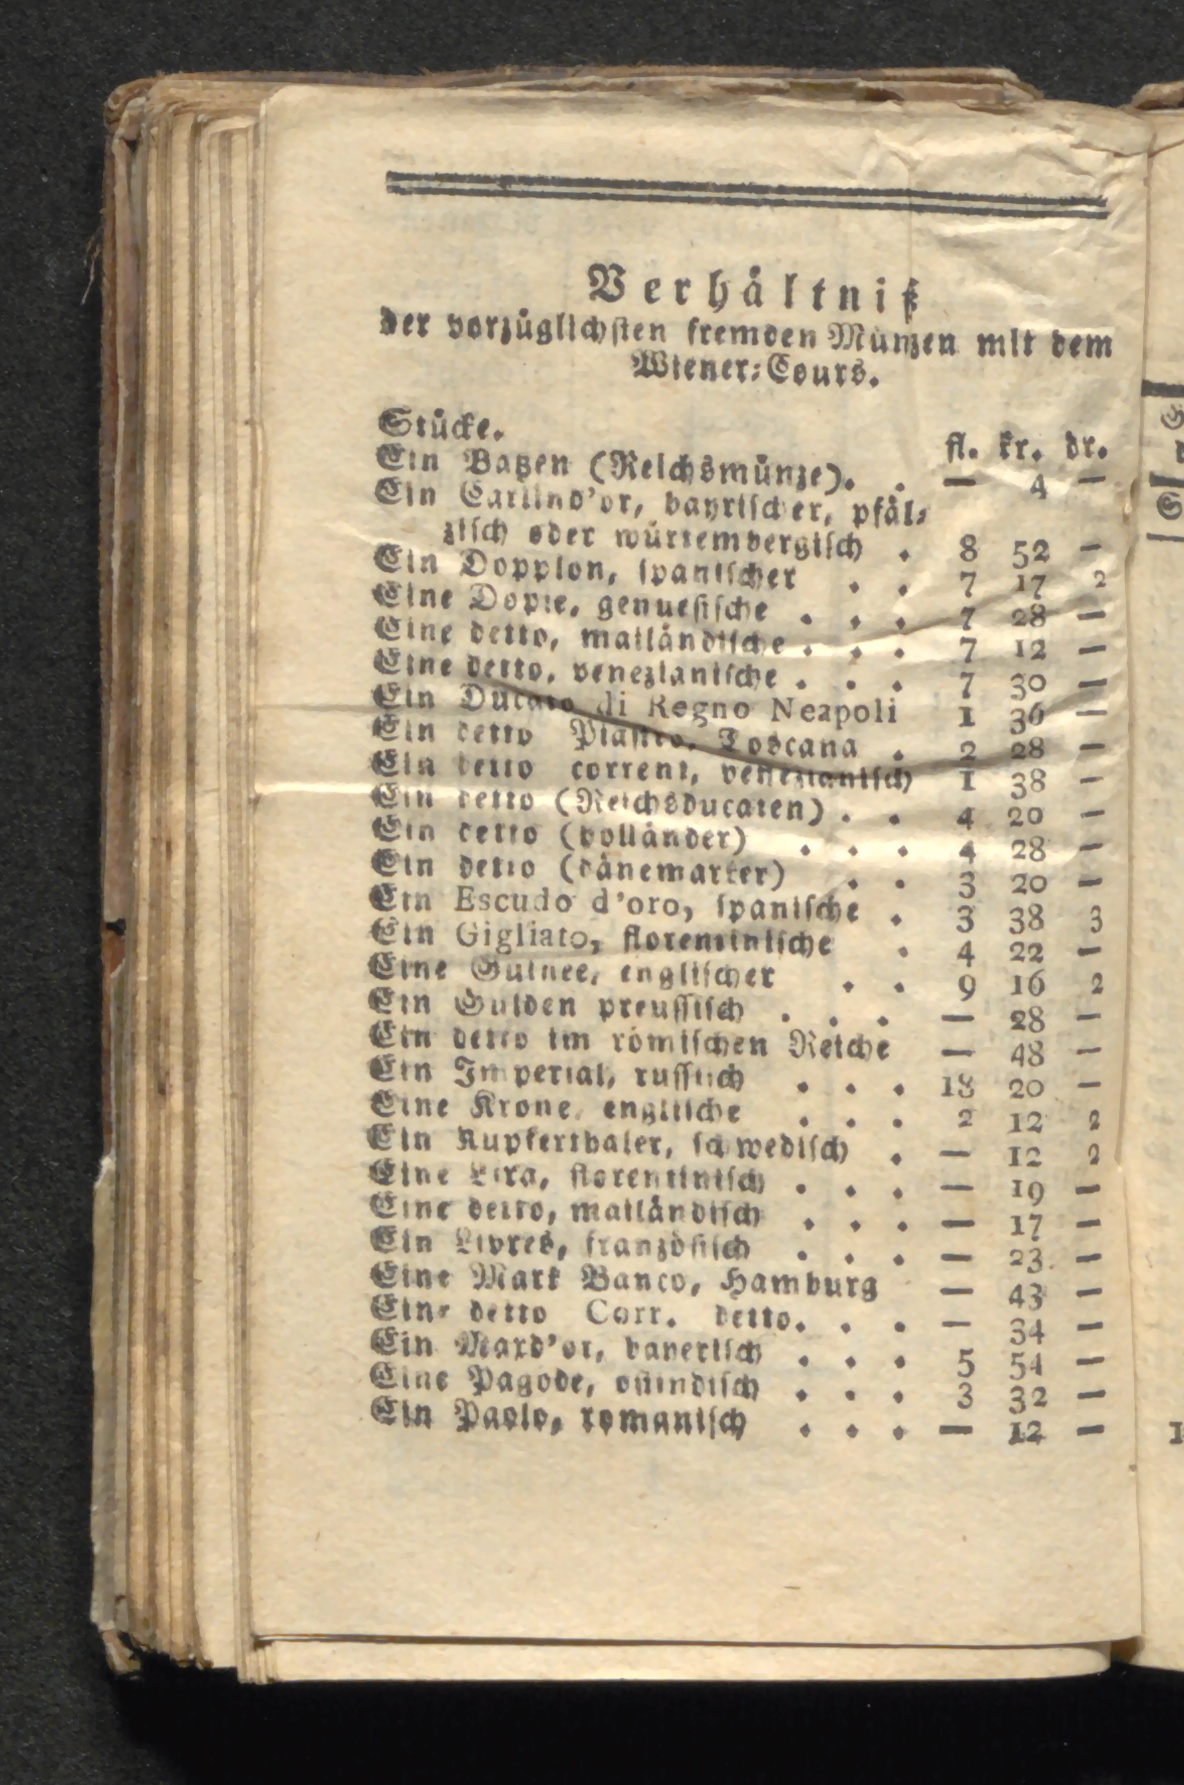 Verhåltniß
der vorzůglichsten fremden Můnzen mit dem
Wiener-Cours.
Stůcke. fl. kr. dr.
Ein Batzen (Reichsmůnze). . — 4 —
Ein Carlind'or, bayrischer, pfål-
zisch oder würtembergisch . 8 52 —
Ein Dopplon, spanischer . . 7 17 2
Eine Dopie, genuesische . . . 7 28 —
Eine detto, mailåndische . . . 7 12 —
Eine detto, venezianische . . . 7 30 —
Ein Ducato di Regno Neapoli 1 36 —
Ein detto Piastro, Toscana . 2 28 —
Ein detto corrent, venezianisch 1 38 —
Ein detto (Reichsducaten) . . 4 20 —
Ein detto (hollånder) . . . 4 28 —
Ein detto (dånemarker) . . 3 20 —
Ein Escudo d'oro, spanische . 3 38 3
Ein Gigliato, florentinische . 4 22 —
Eine Guinee, englischer . . 9 16 2
Ein Gulden preussisch . . . — 28 —
Ein detto im römischen Reiche — 48 —
Ein Imperial, russisch . . . 18 20 —
Eine Krone, englische . . . 2 12 2
Ein Kupferthaler, schwedisch . — 12 2
Eine Lira, florentinisch . . . — 19 —
Eine detto, mailåndisch . . . — 17 —
Ein Livres, franzősisch . . . — 23 —
Eine Mark Banco, Hamburg — 43 —
Eine detto Corr. detto. . . — 34 —
Ein Maxd'or, bayerisch . . . 5 54 —
Eine Pagode, ostindisch . . . 3 32 —
Ein Paolo, romanisch . . . — 12 —